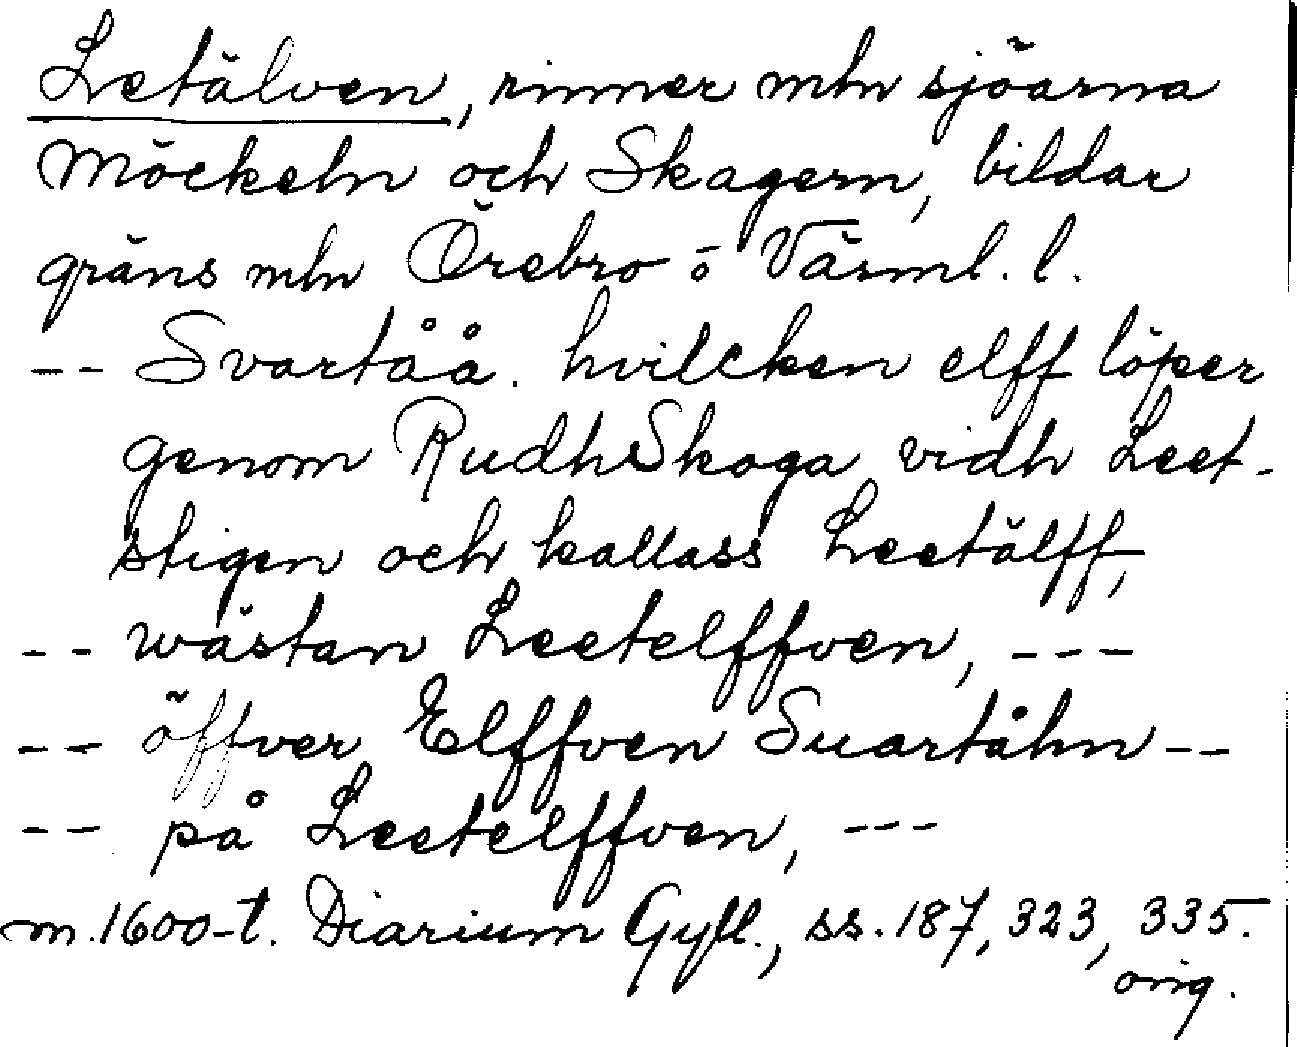 Letälven, rinner mln sjöarna
Möckeln och Skagern, bildar
gräns mln Örebro o Värml. l.
-- Svartåå. hvilcken elff löper
genom RudhSkoga vidh Leet-
stigen och kallass Leetälff,
-- wästan Leetelffven, ---
-- öffver Elffven Suartåhn --
-- på Leetelffven, ---
m. 1600-t. Diarium Gyll., ss. 187, 323, 335.
orig.